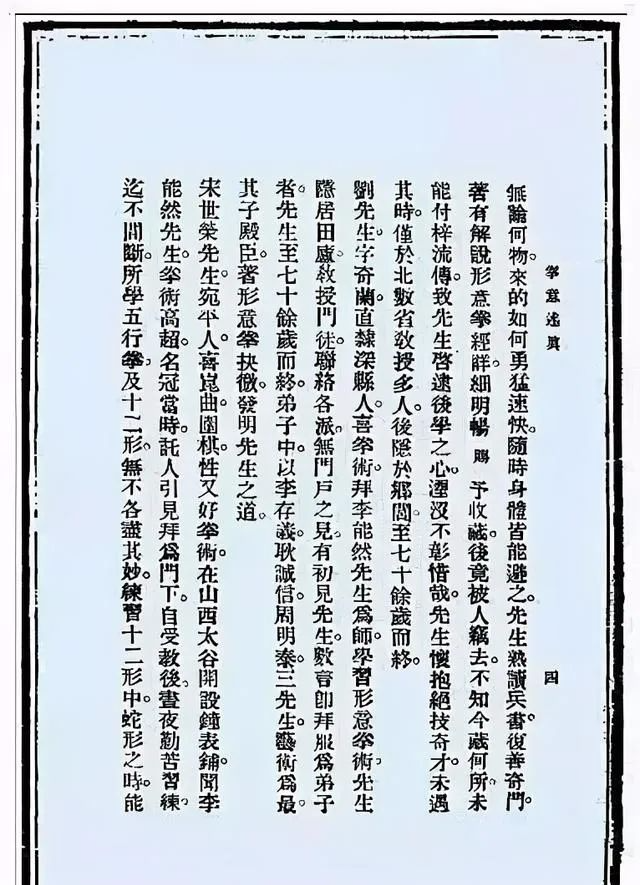 拳意述眞
四
無論何物來的如何勇猛速快。隨時身體皆能避之。先生熟讀兵書。復善奇門。
著有解說形意拳經。詳細明暢。賜予收藏。後竟被人竊去。不知今藏何所。未
能付梓流傳。致先生啓迪後學之心。湮沒不彰。惜哉。先生懷抱絕技奇才。未遇
其時。僅於北數省敎授多人。後隱於鄉閭。至七十餘歲而終。
劉先生字奇蘭。直隸深縣人。喜拳術。拜李能然先生爲師。學習形意拳術。先生
隱居田廬。敎授門徒。聯絡各派。無門戶之見。有初見先生。數言卽拜服爲弟子
者。先生至七十餘歲而終。弟子中以李存義。耿誠信。周明泰。三先生。藝術爲最。
其子殿臣。著形意拳抉微。發明先生之道。
宋世榮先生。宛平人。喜崑曲圍棋。性又好拳術。在山西太谷開設鐘表鋪。聞李
能然先生。拳術高超。名冠當時。託人引見。拜爲門下。自受敎後。晝夜勤苦習練。
迄不間斷。所學五行拳。及十二形。無不各盡其妙。練習十二形中。蛇形之時。能